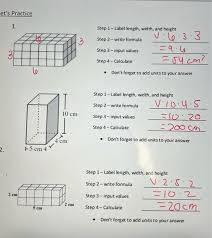 Let's Practice
1.
3
3
6
Step 1 – Label length, width, and height
Step 2 – write formula V 6 · 3 · 3
Step 3 – input values = 9 · 6
Step 4 – Calculate = 54 cm³
• Don't forget to add units to your answer
10 cm
4 cm
5 cm
2.
Step 1 – Label length, width, and height
Step 2 – write formula V 10 · 4 · 5
Step 3 – input values = 10 · 20
Step 4 – Calculate = 200 cm
• Don't forget to add units to your answer
2 cm
2 cm
Step 1 – Label length, width, and height
Step 2 – write formula V 2 · 5 · 2
Step 3 – input values = 10 · 2
Step 4 – Calculate = 20 cm
• Don't forget to add units to your answer